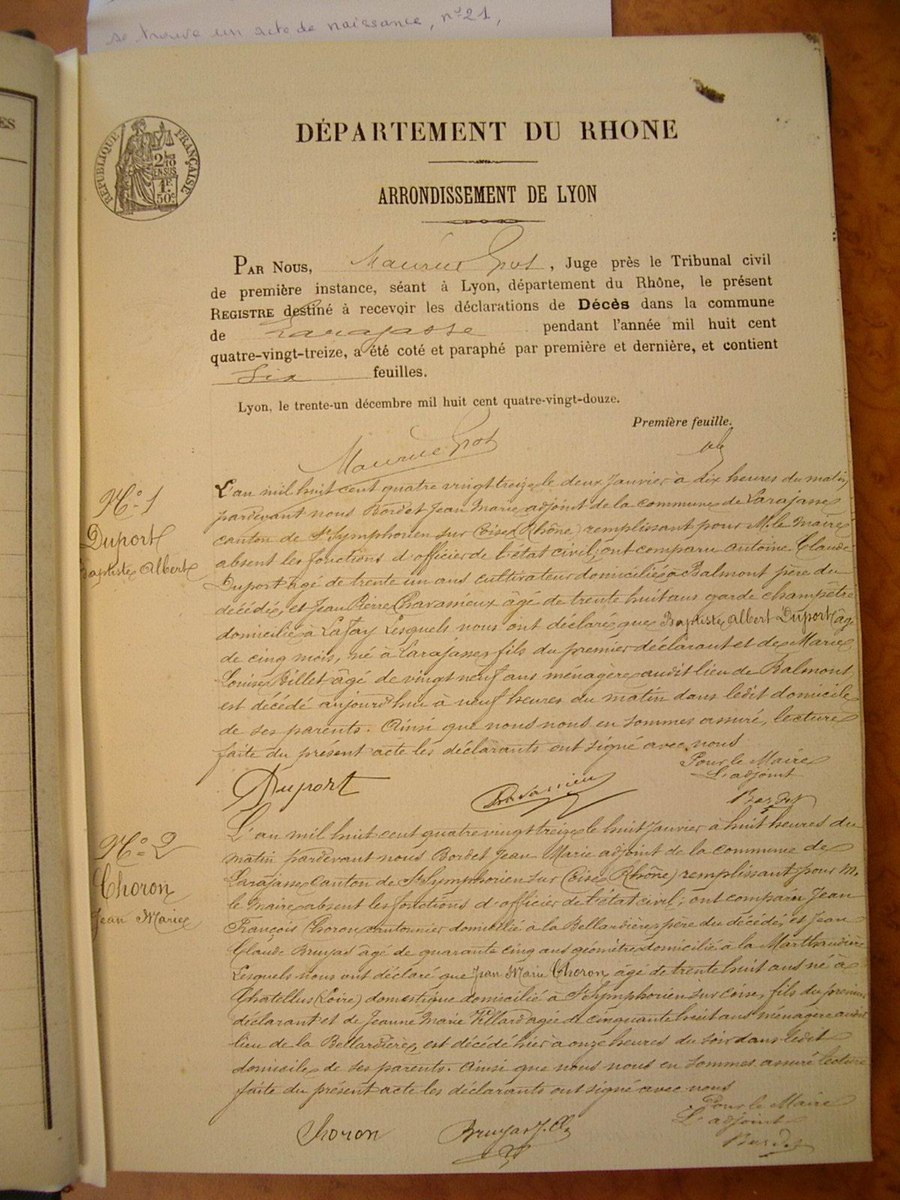 se trouve un acte de naissance, n° 21,
ES
RÉPUBLIQUE FRANÇAISE
2/10
EN SUS
1F
50c
DÉPARTEMENT DU RHONE
ARRONDISSEMENT DE LYON
PAR NOUS, Maurice , Juge près le Tribunal civil
de première instance, séant à Lyon, département du Rhône, le présent
REGISTRE destiné à recevoir les déclarations de Décès dans la commune
de Larajasse pendant l'année mil huit cent
quatre-vingt-treize, a été coté et paraphé par première et dernière, et contient
Six feuilles.
Lyon, le trente-un décembre mil huit cent quatre-vingt-douze.
Première feuille.
Maurice
N° 1
Duport
Baptiste Albert
L'an mil huit cent quatre vingt treize le deux Janvier à dix heures du matin
pardevant nous Bordet Jean Marie adjoint de la commune de Larajasse
canton de St Symphorien sur Coise (Rhône) remplissant pour M. le maire
absent les fonctions d'officier de l'état civil; ont comparu Antoine Claude
Duport âgé de trente un ans cultivateur domicilié à Balmont père du
décédé, et Jean Pierre Charasieux âgé de trente huit ans garde champêtre
domicilié à Lafay Lesquels nous ont déclaré que Baptiste Albert Duport âgé
de cinq mois, né à Larajasse fils du premier déclarant et de Marie
Louise Billet agé de vingt neuf ans ménagère audit lieu de Balmont
est décédé aujourd'hui à neuf heures du matin dans ledit domicile
de ses parents. Ainsi que nous nous en sommes assuré, lecture
faite du présent acte les déclarants ont signé avec nous
Pour le Maire
L'adjoint
Duport Bordet
N° 2
Choron
Jean Marie
L'an mil huit cent quatre vingt treize le huit Janvier à huit heures du
matin pardevant nous Bordet Jean Marie adjoint de la commune de
Larajasse Canton de St Symphorien sur Coise (Rhône) remplissant pour M.
le maire absent les fonctions d'officier de l'état civil; ont comparu Jean
François Choron cantonnier domicilié à la Bellardière père du décédé, et Jean
Claude Bruyas âgé de quarante cinq ans géomètre domicilié à la
Lesquels nous ont déclaré que Jean Marie Choron âgé de trente huit ans né à
Chatellus (Loire) domestique domicilié à St Symphorien sur Coise, fils du premier
déclarant et de Jeanne Marie Villard agée de cinquante huit ans ménagère audit
lieu de la Bellardière, est décédé hier à onze heures du soir dans ledit
domicile de ses parents. Ainsi que nous nous en sommes assuré lecture
faite du présent acte les déclarants ont signé avec nous
Pour le Maire
L'adjoint
Choron Bruyas J. Cl. Bordet